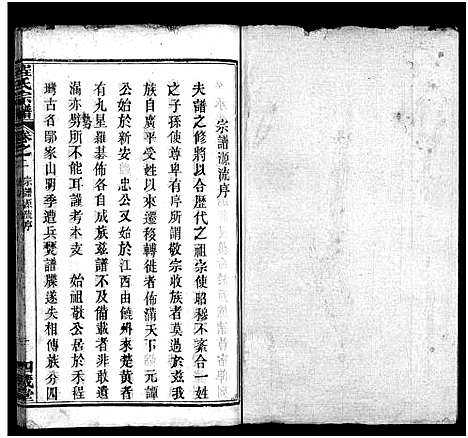 宗譜源流序
夫譜之修將以合歷代之祖宗使昭穆不紊一姓
之子孫使尊卑有序所謂敬宗收族者莫過於玆我
族自廣平受姓以來遷移轉徙者佈滿天下 元譚
公始於新安 忠公始於江西由饒州來楚黃者
有九星羅綦佈各自成族玆譜不及備載者非敢遺
漏亦勢所不能耳謹考本支 始祖敬公居於禾程
灣古名鄢家山明季遭兵燹譜牒遂失相傳族分四
程氏宗譜
卷之
宗譜源流序
四箴堂